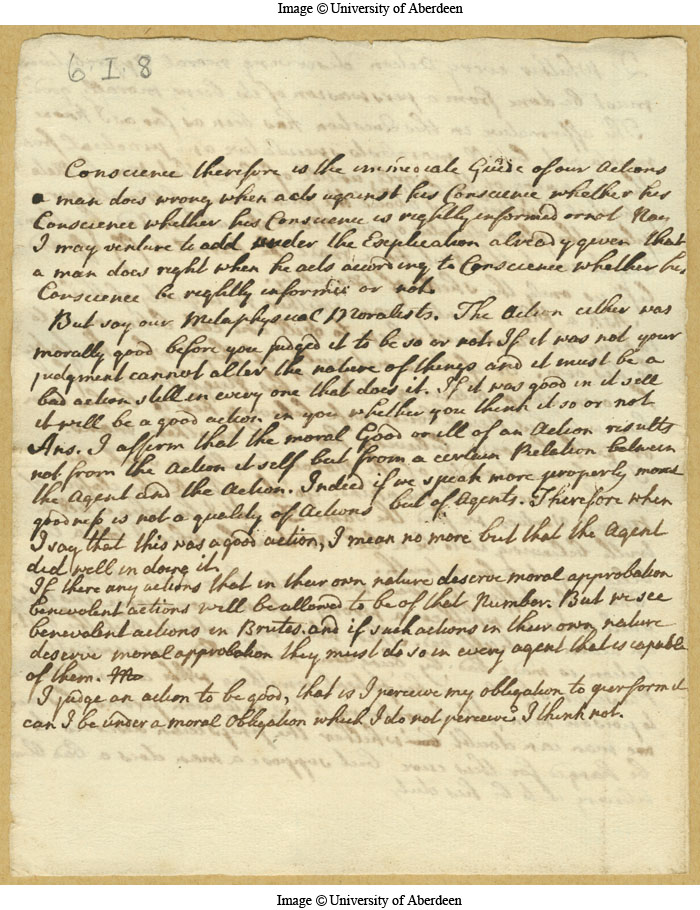 Image © University of Aberdeen
6 I. 8
Conscience therefore is the immediate Guide of our Actions
a man does wrong when acts against his Conscience whether his
Conscience whether his Conscience is rightly informed or not Nay
I may venture to add under the Explication already given that
a man does right when he acts according to Conscience whether his
Conscience be rightly informed or not.
But say our Metaphysical Moralists. The Action either was
morally good before you judged it to be so or not. If it was not your
judgment cannot alter the nature of things and it must be a
bad action still in every one that does it. If it was good in it self
it will be a good action in you whether you think it so or not
Ans. I affirm that the moral Good or ill of an Action results
not from the Action it self but from a certain Relation between
the Agent and the Action. Indeed if we speak more properly moral
goodness is not a quality of Actions but of Agents. Therefore when
I say that this was a good action, I mean no more but that the Agent
did well in doing it.
If there any actions that in their own nature deserve moral approbation
benevolent actions will be allowed to be of that Number. But we see
benevolent actions in Brutes. and if such actions in their own nature
deserve moral approbation they must do so in every agent that is capable
of them.
I judge an action to be good, that is I perceive my obligation to perform it
can I be under a moral Obligation which I do not perceive? I think not.
Image © University of Aberdeen